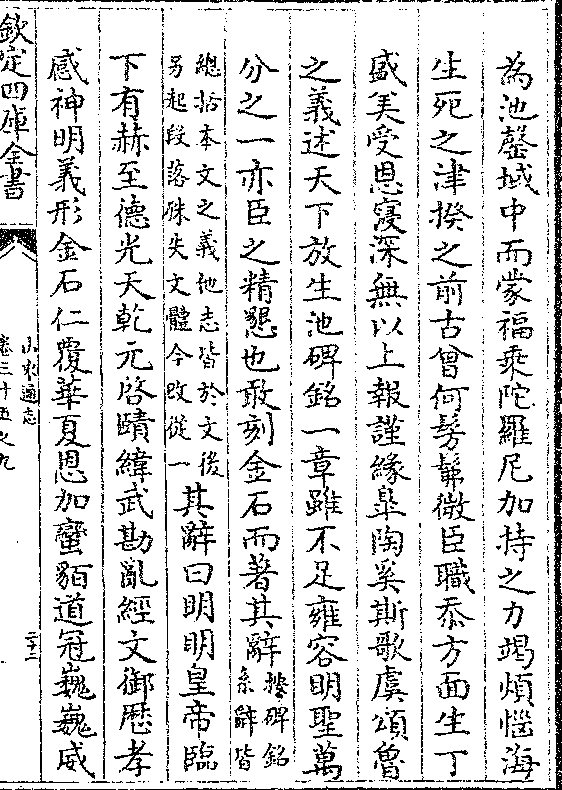 為池罄域中而蒙福乘陀羅尼加持之力竭煩惱海
生死之津揆之前古曾何髣髴微臣職忝方面生丁
盛美受恩寖深無以上報謹緣臯陶奚斯歌虞頌魯
之義述天下放生池碑銘一章雖不足雍容明聖萬
分之一亦臣之精懇也敢刻金石而著其辭
按碑銘
系辭皆
總括本文之義他志皆於文後
另起段落殊失文體今改從一
其辭曰明明皇帝臨
下有赫至德光天乾元啓賾緯武勘亂經文御歷孝
感神明義形金石仁覆華夏恩加蠻貊道冠巍巍威
欽定四庫全書
山東通志
卷三十五之九
二十二